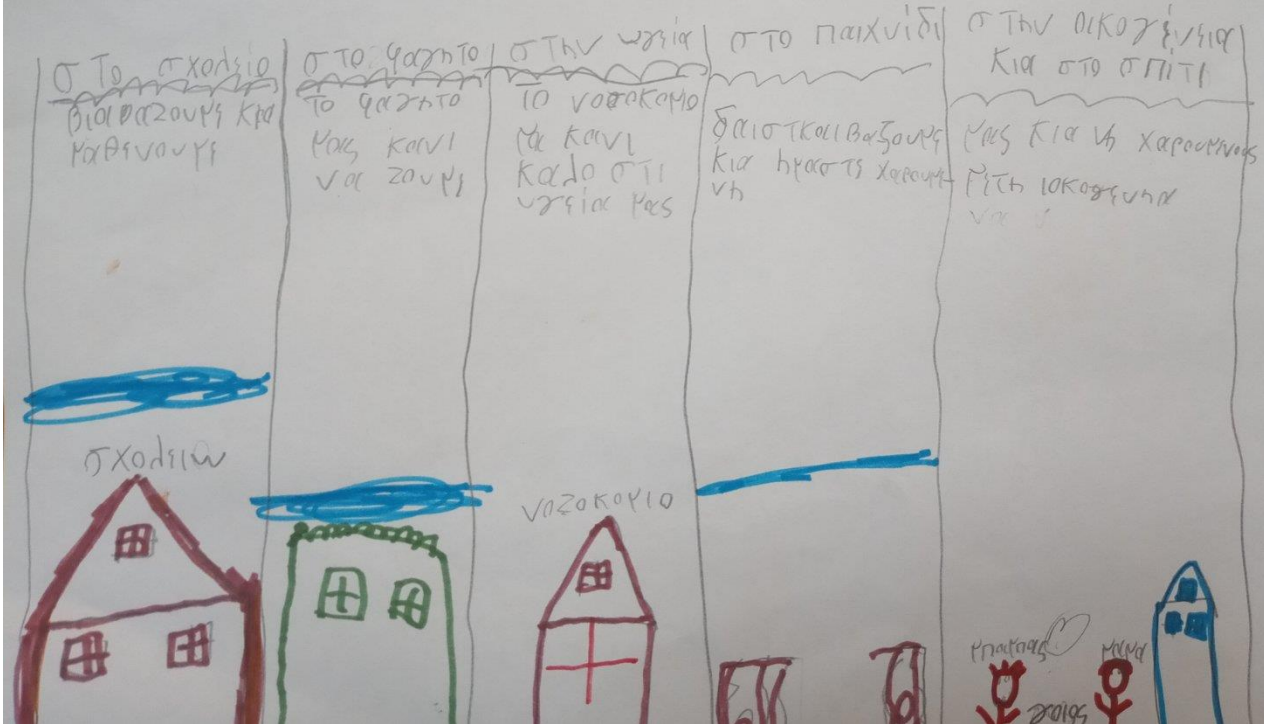 στο σχολείο
βιαβαζουμε και
μαθενουμε
σχολειω
στο φαγητο
το φαγητο
μας κανι
να ζουμε
στην υγεία
το νοσοκομιο
μα κανι
καλο στι
υγεία μας
νοζοκομιο
στο παιχνίδι
κια ημαστε χαρουμε
νη
στην οικογένεια
κια στο σπιτι
μας κια νη χαρουμενους
μιτη ιοκογενηα
μπαμπας
μαμα